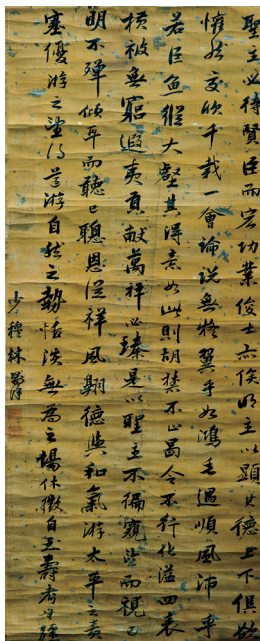 聖主必待賢臣而宏功業俊士亦俟明主以顯其德上下俱欲
懽然交欣千載一會論說無疑翼乎如鴻毛過順風沛乎
若巨魚縱大壑其得意如此則胡禁不止曷令不行化溢四表
橫被無窮遐夷貢獻萬祥必臻是以聖主不徧窺望而視已
明不殫傾耳而聽已聰恩從祥風翱德與和氣游太平之責
塞優游之望得遵游自然之勢恬淡無為之場休徵自至壽考無疆
少穆林則徐